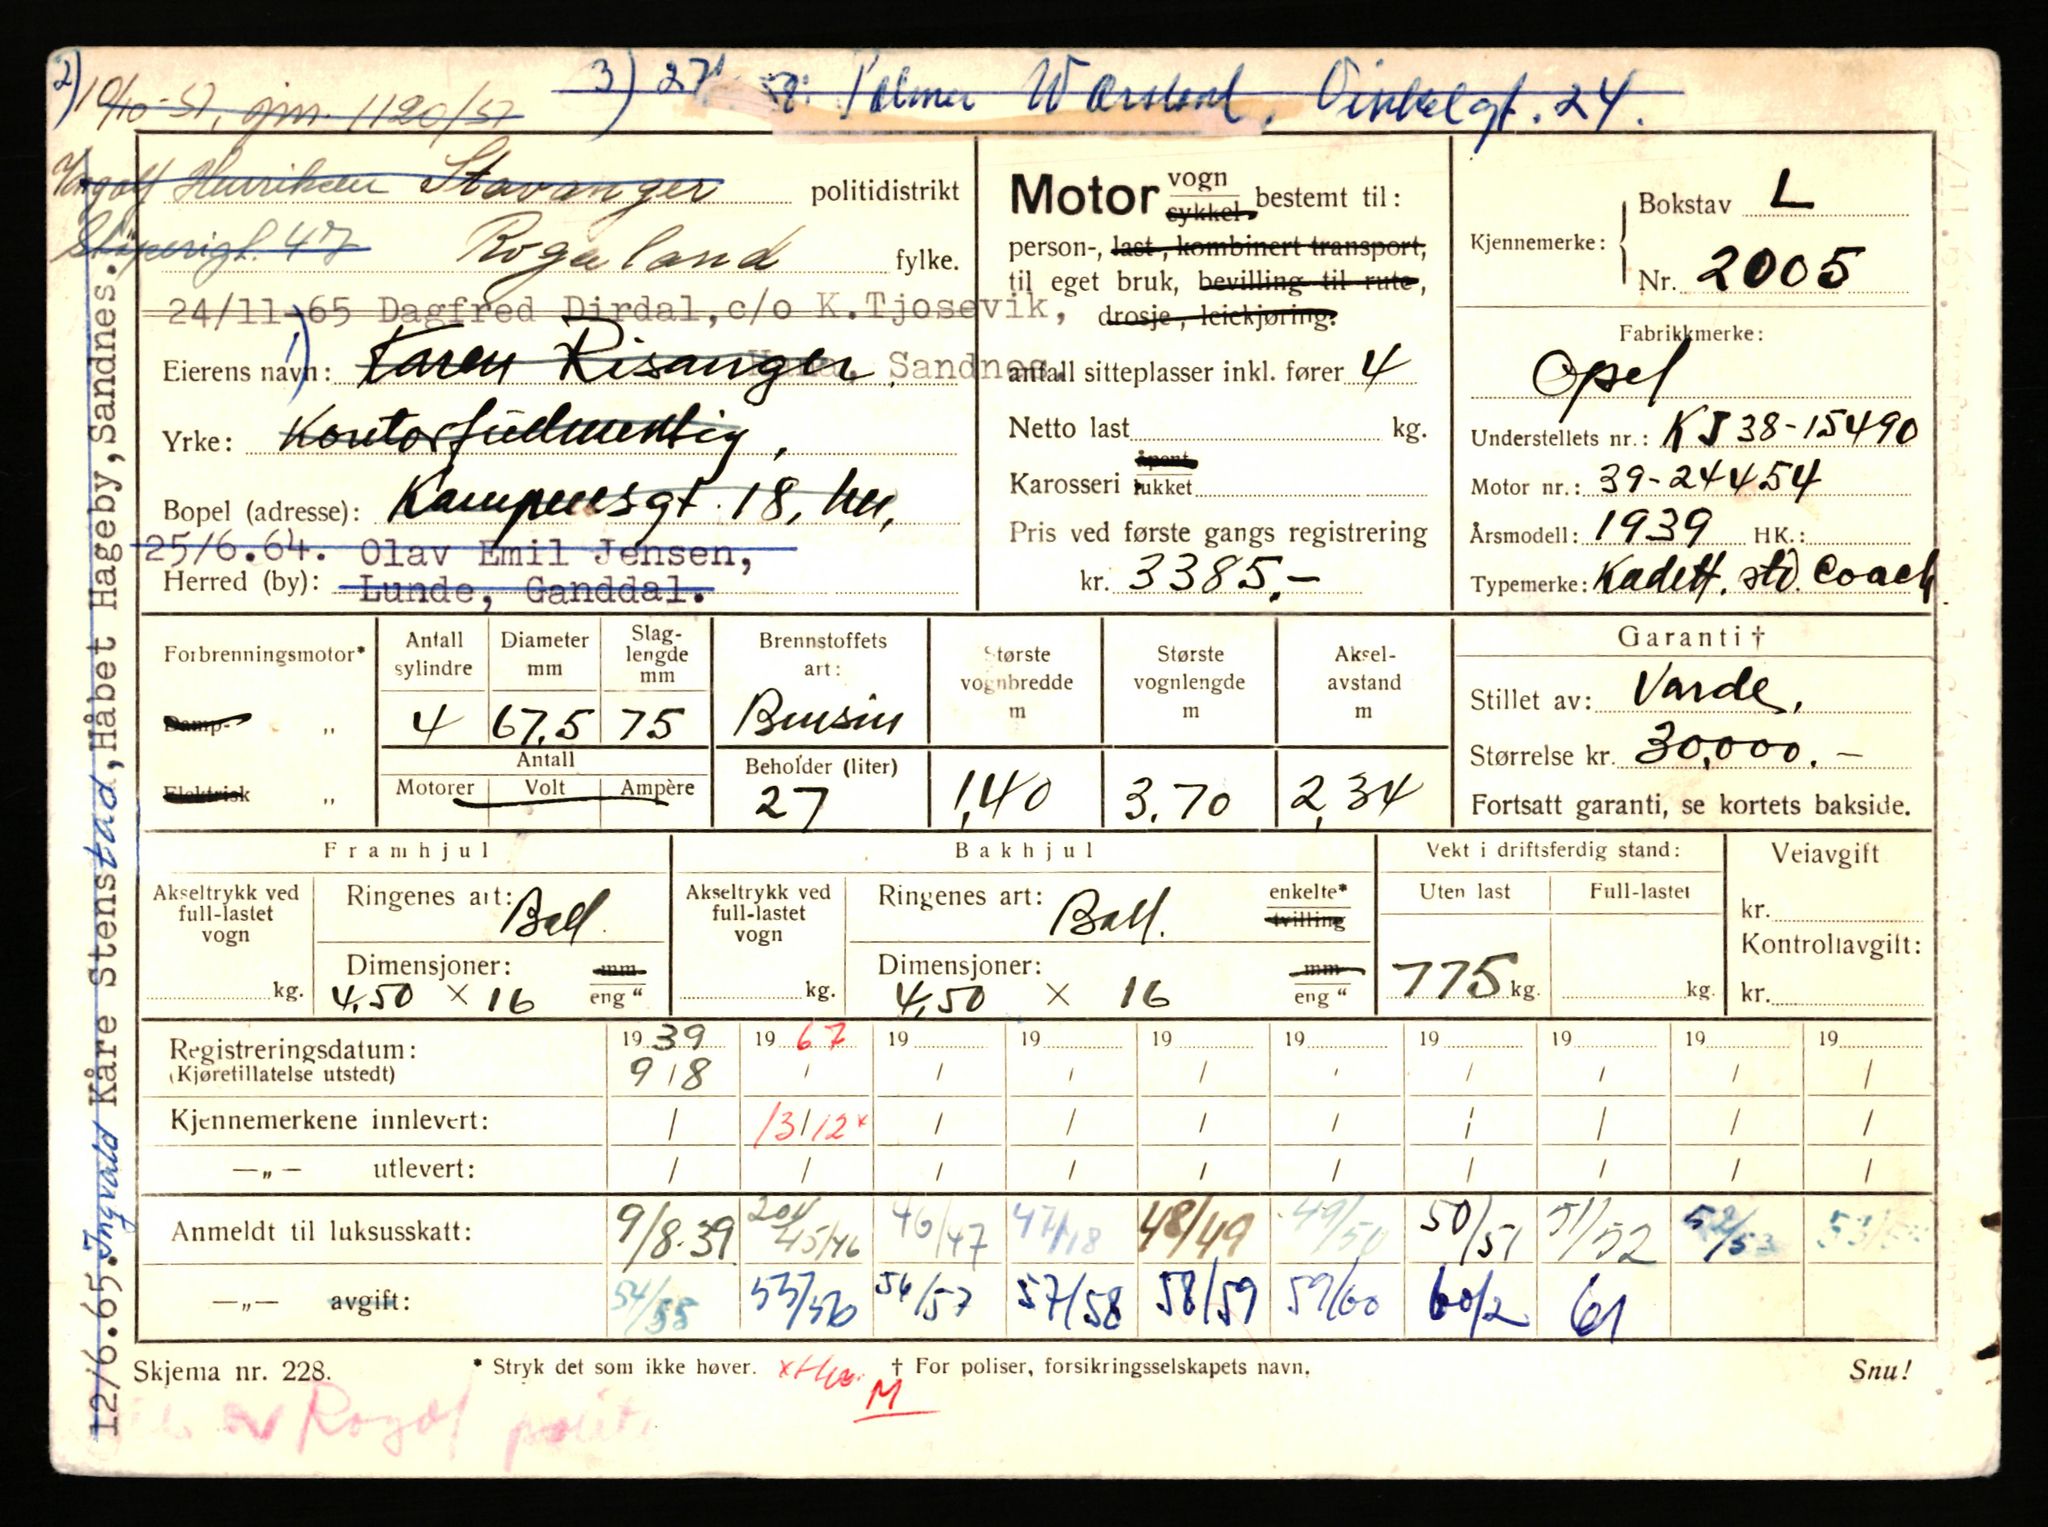 2) 10/10-57, gjm. 1120/57
3) 27 Palmer Warsland, Vinkelgt. 24.
Yngolf Henriksen
47
Stavanger politidistrikt
Rogaland fylke.
24/11-65 Dagfred Dirdal, c/o K. Tjosevik,
Hana, Sandnes.
1)
Eierens navn: Karen Risanger,
Yrke: Kontorfullmektig,
Bopel (adresse): Kampensgt. 18, her,
25/6.64. Olav Emil Jensen,
Herred (by): Lunde, Ganddal.
12/6.65. Ingvald Kåre Stenstad, Håbet Hageby, Sandnes.
Motor vogn sykkel bestemt til:
person-, last, kombinert transport,
til eget bruk, bevilling til rute,
drosje, leiekjøring.
antall sitteplasser inkl. fører 4
Netto last kg.
Karosseri åpent lukket
Pris ved første gangs registrering
kr. 3385.-
Kjennemerke: Bokstav L
Nr. 2005
Fabrikkmerke:
Opel
Understellets nr.: KJ 38-15490
Motor nr.: 39-24454
Årsmodell: 1939 HK.:
Typemerke: Kadett. std. Coach
Forbrenningsmotor*
Damp- „
Elektrisk „
Antall sylindre 4
Diameter mm 67,5
Slaglengde mm 75
Antall
Motorer Volt Ampère
Brennstoffets art: Bensin
Beholder (liter) 27
Største vognbredde m 1,40
Største vognlengde m 3.70
Akselavstand m 2,34
Garanti †
Stillet av: Varde.
Størrelse kr. 30.000.-
Fortsatt garanti, se kortets bakside.
Framhjul
Akseltrykk ved full-lastet vogn kg.
Ringenes art: Ball.
Dimensjoner: mm
4,50 × 16 eng "
Bakhjul
Akseltrykk ved full-lastet vogn kg.
Ringenes art: Ball. enkelte* tvilling
Dimensjoner: mm
4,50 × 16 eng "
Vekt i driftsferdig stand:
Uten last 775 kg.
Full-lastet kg.
Veiavgift
kr.
Kontrollavgift:
kr.
19 39 19 67 19 19 19 19 19 19 19 19
Registreringsdatum: 9/8 / / / / / / / / /
(Kjøretillatelse utstedt)
Kjennemerkene innlevert: / 13/12 x / / / / / / / /
—„— utlevert: / / / / / / / / / /
Anmeldt til luksusskatt: 9/8.39 45/46 46/47 47/48 48/49 49/50 50/51 51/52 52/53 53/54
—„— avgift: 54/55 55/56 56/57 57/58 58/59 59/60 60/2 61
Skjema nr. 228. * Stryk det som ikke høver. † For poliser, forsikringsselskapets navn. Snu!
M
Rogal politi